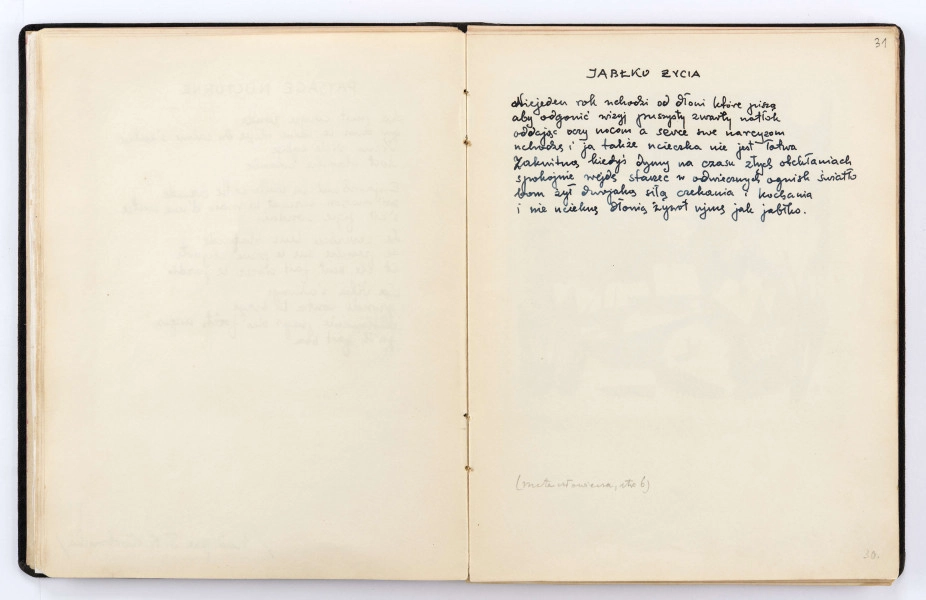 31
JABŁKO ŻYCIA
Niejeden rok uchodzi od dłoni które piszą
aby odgonić wizyj puszysty zwarty natłok
oddając oczy nocom a serce swe narcyzom
uchodzę i ja także ucieczka nie jest łatwa
Zakwitną kiedyś dymy na czasu złych otchłaniach
spokojnie wejdę starzec w odwiecznych ognisk światło
bom żył dwojaką siłą czekania i kochania
i nie ucieknę dłonią żywot ujmę jak jabłko.
str 6)
30.